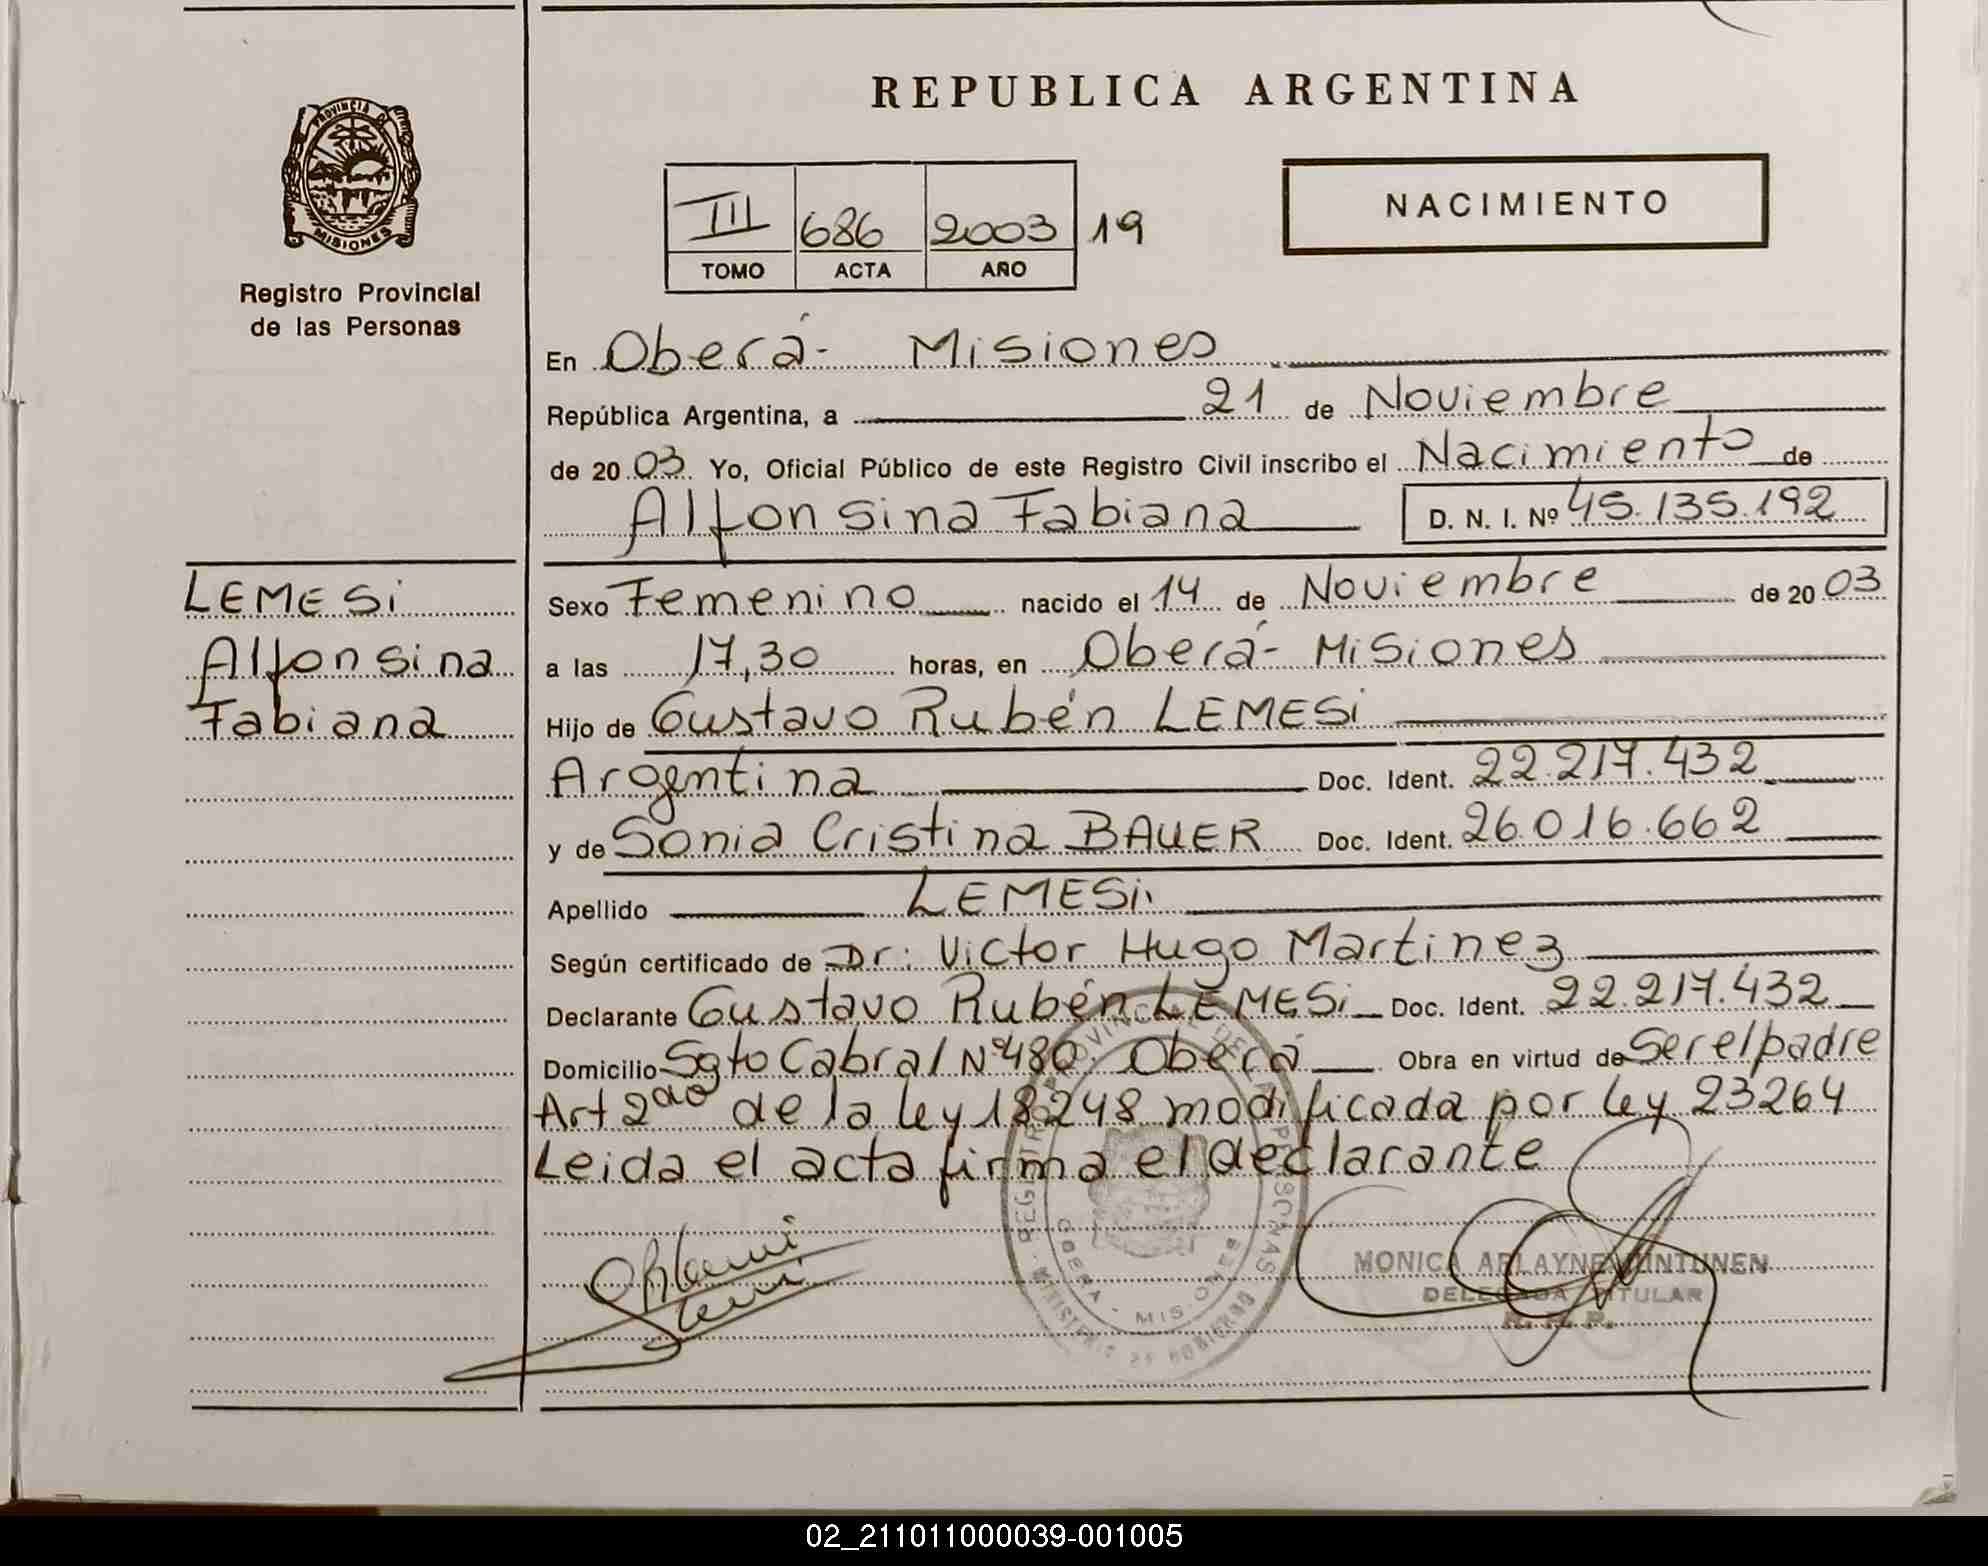 REPUBLICA ARGENTINA
PROVINCIA DE
MISIONES
Registro Provincial
de las Personas
III 686 2003 19
TOMO ACTA AÑO
NACIMIENTO
En Oberá- Misiones
República Argentina, a 21 de Noviembre
de 2003 Yo, Oficial Público de este Registro Civil inscribo el Nacimiento de
Alfonsina Fabiana D. N. I. Nº 45.135.192
LEMESi
Alfonsina
Fabiana
Sexo Femenino nacido el 14 de Noviembre de 2003
a las 17,30 horas, en Oberá- Misiones
Hijo de Gustavo Rubén LEMESi
Argentina Doc. Ident. 22.217.432
y de Sonia Cristina BAUER Doc. Ident. 26.016.662
Apellido LEMESi
Según certificado de Dr: Victor Hugo Martinez
Declarante Gustavo Rubén LEMESi Doc. Ident. 22.217.432
Domicilio Sgto Cabral Nº480. Oberá Obra en virtud de Ser el padre
Art 2do de la ley 18248 modificada por ley 23264
Leida el acta firma el declarante
REGISTRO PROVINCIAL DE LAS PERSONAS
OBERA - MISIONES
MINISTERIO DE GOBIERNO
MONICA ARLAYNE
DELEGADA TITULAR
R. P. P.
02_211011000039-001005